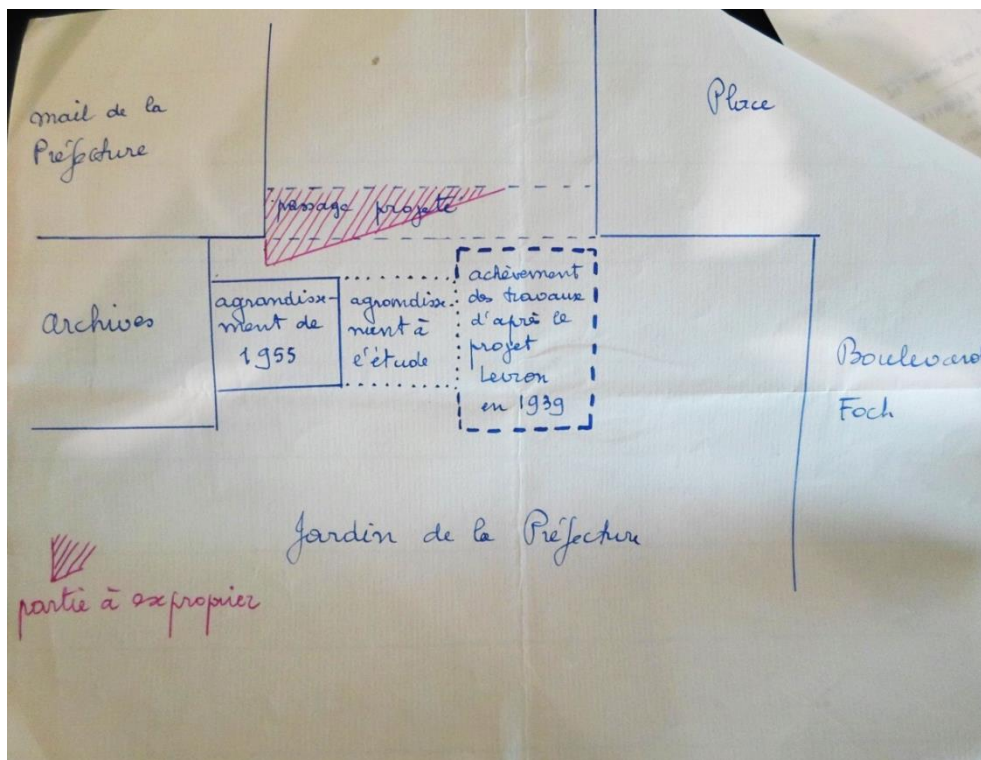 mail de la
Préfecture
Place
passage projeté
Archives
agrandisse-
ment de
1955
agrandisse-
ment à
l'étude
achèvement
des travaux
d'après le
projet
Levron
en 1939
Boulevard
Foch
Jardin de la Préfecture
partie à expropier